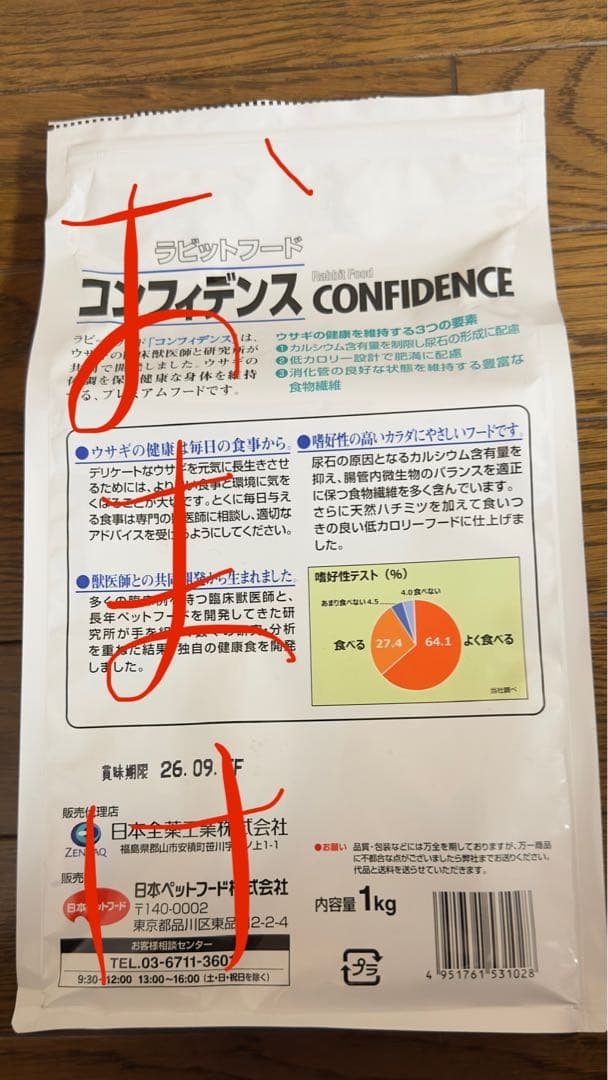 おまけ
ラビットフード
コンフィデンス Rabbit Food CONFIDENCE
ラビットフード「コンフィデンス」は、
ウサギの臨床獣医師と研究所が
共同で開発しました。ウサギの
体調を保ち健康な身体を維持
する、プレミアムフードです。
ウサギの健康を維持する3つの要素
①カルシウム含有量を制限し尿石の形成に配慮
②低カロリー設計で肥満に配慮
③消化管の良好な状態を維持する豊富な
食物繊維
●ウサギの健康は毎日の食事から。
デリケートなウサギを元気に長生きさせ
るためには、よりよい食事と環境に気を
くばることが大切です。とくに毎日与え
る食事は専門の獣医師に相談し、適切な
アドバイスを受けるようにしてください。
●獣医師との共同開発から生まれました。
多くの臨床例を持つ臨床獣医師と、
長年ペットフードを開発してきた研
究所が手を組み、研究・分析
を重ねた結果、独自の健康食を開発
しました。
●嗜好性の高いカラダにやさしいフードです。
尿石の原因となるカルシウム含有量を
抑え、腸管内微生物のバランスを適正
に保つ食物繊維を多く含んでいます。
さらに天然ハチミツを加えて食いつ
きの良い低カロリーフードに仕上げま
した。
嗜好性テスト(%)
4.0 食べない
あまり食べない 4.5
食べる 27.4
64.1 よく食べる
当社調べ
賞味期限 26.09. F
販売代理店
ZENOAQ 日本全薬工業株式会社
福島県郡山市安積町笹川字 ノ上1-1
販売
日本ペットフード 日本ペットフード株式会社
〒140-0002
東京都品川区東品川2-2-4
お客様相談センター
TEL.03-6711-3601
9:30~12:00 13:00~16:00(土・日・祝日を除く)
●お願い 品質・包装などには万全を期しておりますが、万一商品
に不都合な点がございましたら弊社までお送りください。
代品と送料を送らせていただきます。
内容量 1kg
プラ
4 951761 531028